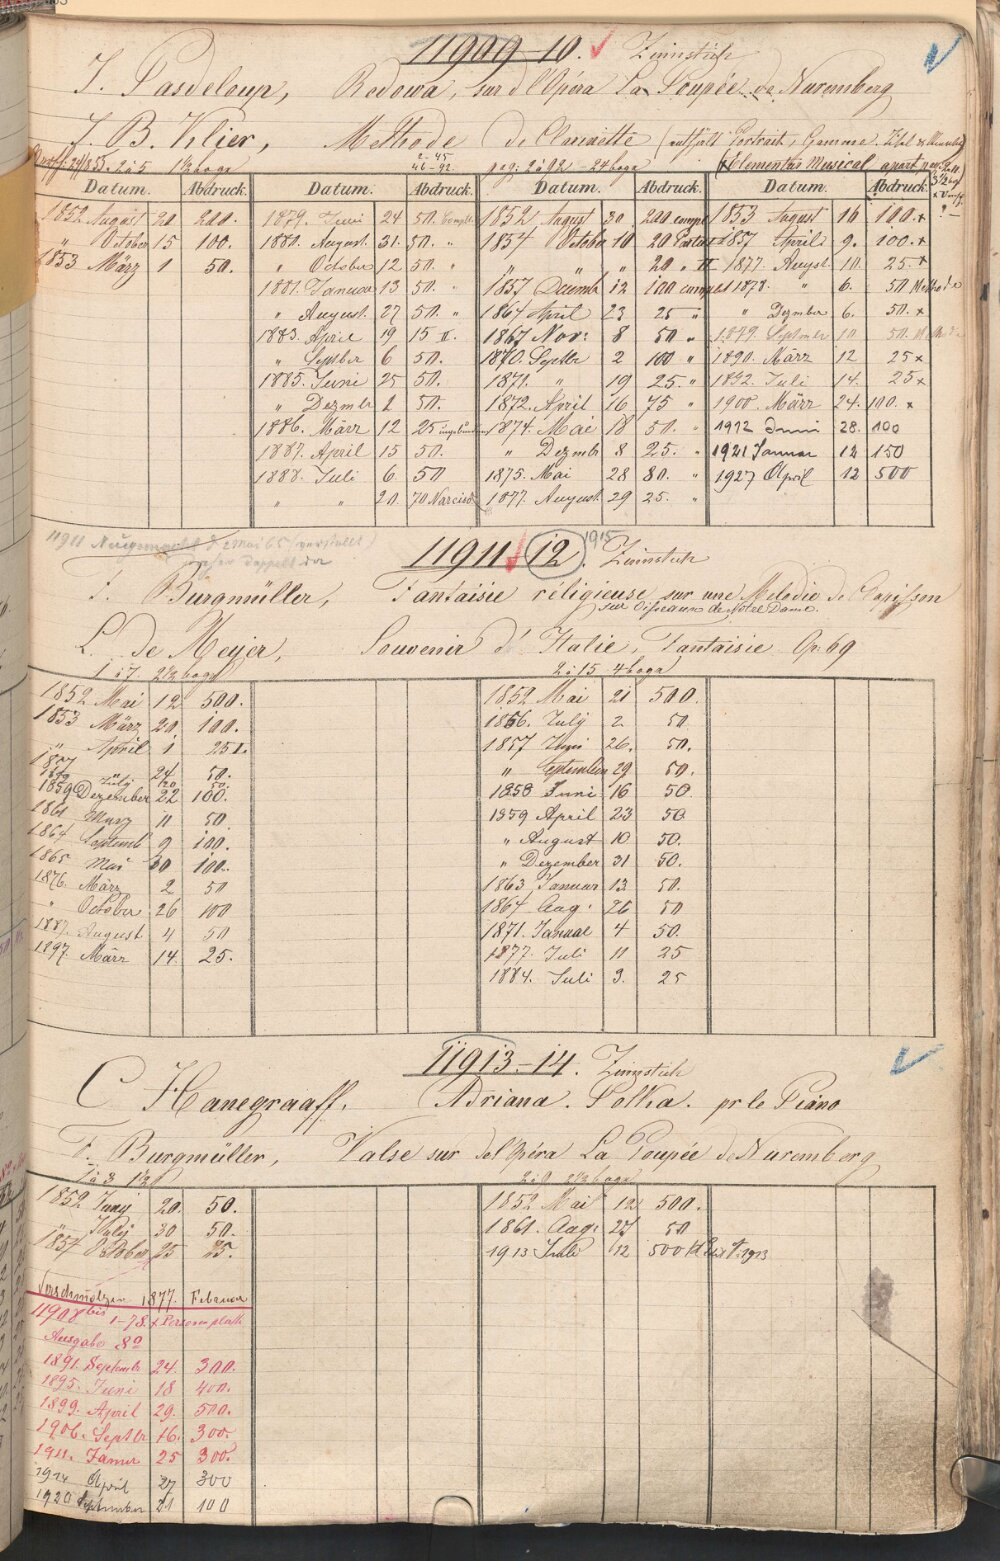 11909-10. Zinnstich
J. Pasdeloup, Redowa, sur d l'Opéra La Poupée de Nuremberg
J. B. Klier, Methode de Clarinette
Elementar Musical apart
Datum. Abdruck. Datum. Abdruck. Datum. Abdruck. Datum. Abdruck.
1852 August 20 200.
" October 15 100.
1853 März 1 50.
1879. Juni 24 50. Complt.
1880. August. 31. 50. "
" October 12 50. "
1881. Januar 13 50. "
" August. 27 50. "
1883. April 19 15 II.
" Septber 6 50.
1885. Juni 25 50.
" Dezmb 1 50.
1886. März 12 25
1887. April 15 50.
1888. Juli 6 50
" " 20. 70
1852 August 20 200 compl
1854 October 10 20 Partie I
" " " 20 " II
1857 Decemb 12 100 complet
1864 April 23 25 "
1867 Nov: 8 50 "
1870. Septbr 2 100 "
1871. " 19 25. "
1872. April 16 75 "
1874. Mai 18 50. "
" Dezmb 8 25. "
1875. Mai 28 80. "
1877. August. 29 25. "
1853 August 16 100. x
1857 April 9. 100. x
1877. August. 10. 25. x
1878. " 6. 50 Methode
" Dezember 6. 50. x
1879. September 10 50. Methode
1890. März 12 25 x
1892. Juli 14. 25 x
1900. März 24. 100. x
1912 Juni 28. 100
1921 Januar 12 150
1927 April 12 500
11911-12. 1915 Zinnstich
F. Burgmüller, Fantaisie réligieuse sur une Melodie de Clapisson
sur Oiseaux de Notre Dame.
L. de Meyer, Souvenir d'Italie, Fantaisie Op. 69
1 à 7. 2 1/2 boga
2 à 15 4 boga
1852 Mai 12 500.
1853 März 20. 100.
" April 1 251.
1857 24 50.
July 20 50.
1859 Dezember 22 100.
1861 März 11 50.
1864 Septemb 9 100.
1865 Mai 30 100.
1876. März 2 50
" October 26 100
1887. August 4 50
1897. März 14. 25.
1852 Mai 21 500.
1856. July 2. 50.
1857 Juni 26. 50.
" September 29 50.
1858 Juni 16 50.
1859 April 23 50
" August 10 50.
" Dezember 31 50.
1863 Januar 13 50.
1864 Aug: 26 50
1871. Januar 4 50.
1877. Juli 11 25
1884. Juli 3. 25
11913-14. Zinnstich
C Hanegraaff. Adriana. Polka. pr le Piano
F. Burgmüller, Valse sur del'Opéra La Poupée de Nuremberg
1852 Juny 20. 50.
" July 30 50.
1857 October 25 25.
Verschmolzen 1877. Februar
11908 bis
Ausgabe 8º
1891. Septemb 24. 300.
1895. Juni 18 400.
1899. April 29. 500.
1906. Septbr 16. 300.
1911. Januar 25 300.
1914 April 27 300
1920 September 21 100
1852 Mai 12 500.
1861. Aug: 27 50
1913 Juli 12 500